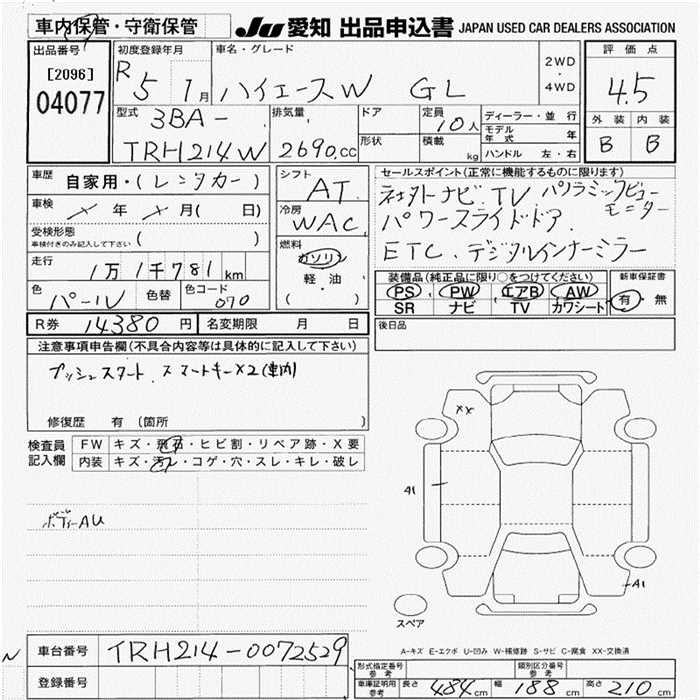 車内保管・守衛保管 JU 愛知 出品申込書 JAPAN USED CAR DEALERS ASSOCIATION
出品番号 初度登録年月 車名・グレード 評価点
[2096] R5 1月 ハイエースW GL 2WD・4WD 4.5
04077
型式 排気量 ドア 定員 ディーラー・並行 外装 内装
3BA- 10人 モデル年式 年 B B
TRH214W 2690.CC 形状 積載 kg ハンドル 左・右
車歴 自家用・(レンタカー) シフト AT セールスポイント(正常に機能するものに限ります)
車検 ×年×月( 日) 冷房 WAC ナビ.TV パノラミックビューモニター
受検形態 車検付きのみ記入して下さい ( ) 燃料 パワースライドドア.
走行 1万1千781km ガソリン 軽・油 ( ) ETC.デジタルインナーミラー
色 パール 色替 色コード 070 装備品(純正品に限り○をつけてください) 新車保証書
PS PW エアB AW 有・無
SR ナビ TV カワシート
R券 14380円 名変期限 月 日 後日品
注意事項申告欄(不具合内容等は具体的に記入して下さい)
プッシュスタート.スマートキー×2(車内)
修復歴 有 (箇所
検査員記入欄 FW キズ・飛石・ヒビ割・リペア跡・X要
内装 キズ・汚レ・コゲ・穴・スレ・キレ・破レ
ボデーAU
XX
A1
A1
スペア
A-キズ E-エクボ U-凹み W-補修跡 S-サビ C-腐食 XX-交換済
N 車台番号 TRH214-0072529
登録番号
指定型式番号 参考 類別区分番号 参考
車庫証明用 参考 長さ 484cm 幅 188cm 高さ 210cm